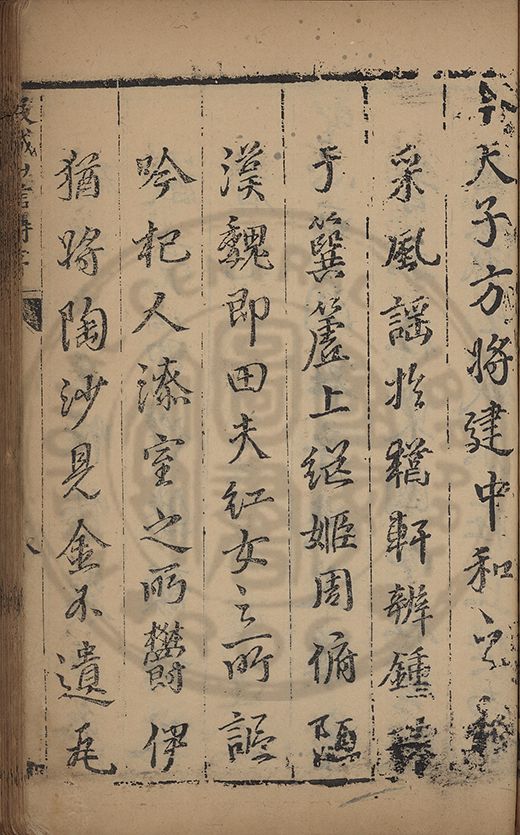 今天子方將建中和之
采風謠於輶軒辨鍾
于簨簴上繼姬周俯隘
漢魏即田夫紅女之所謳
吟杞人漆室之所鬱伊
猶將陶沙見金不遺毛